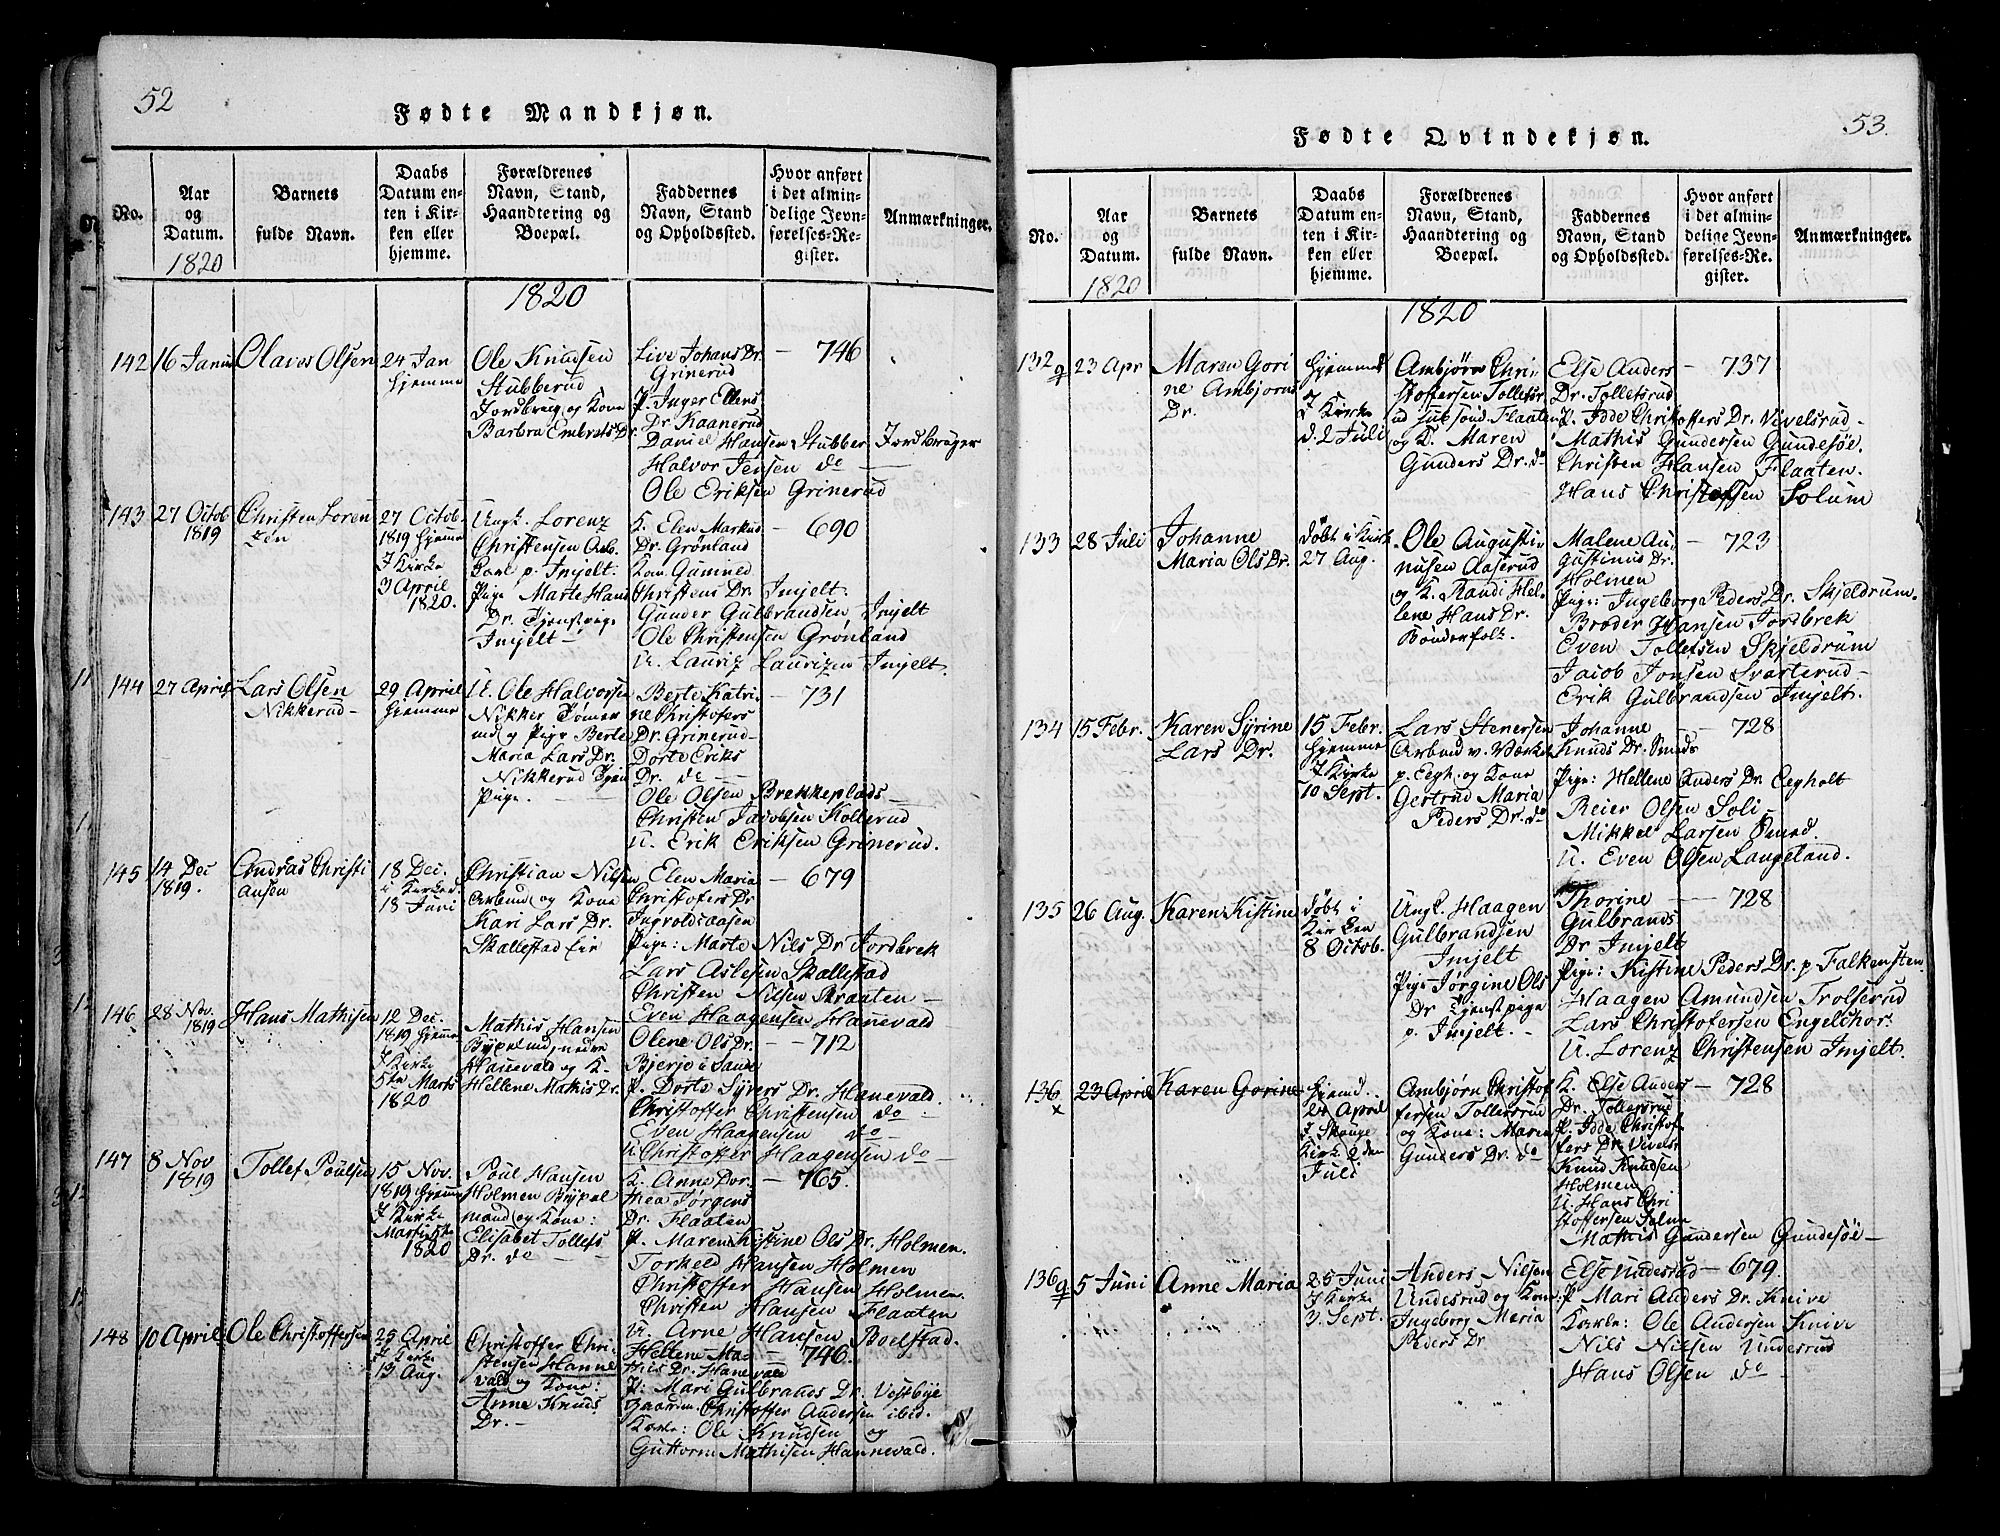 52
Fødte Mandkjøn.
No.
Aar
og
Datum.
1820
Barnets
fulde Navn.
Daabs
Datum en-
ten i Kir-
ken eller
hjemme.
Forældrenes
Navn, Stand,
Haandtering og
Boepæl.
Faddernes
Navn, Stand
og Opholdssted.
Hvor anført
i det almin-
delige Jevn-
førelses-Re-
gister.
Anmærkninger.
1820
142
16 Janu
Olaves Olsen
24 Jan
hjemme
Ole Knudsen
Stubberud
Jordbrug og Kone
Barbra Embrets Dr.
Live Johans Dr.
Grinerud
P. Inger Ellens
Dr. Kaanerud
Daniel Hansen Stubber Jordbruger
Halvor Jensen do
Ole Eriksen Grinerud
746
143
27 Octob
1819
Christen Loren
zen
27 Octob.
1819 hjemme
I Kirke
3 April
1820.
Ungk. Lorenz
Christensen Arb.
Carl p. Injelt.
Pige Marte Hans
Dr. Tjenstpige
Injelt
K. Elen Markus
Dr. Grønland
Kom. Gunned
Christens Dr. Injelt.
Gunder Gulbrandsen Injelt
Ole Christensen Grønland
U. Lauriz Laurizen Injelt.
690
144
27 April
Lars Olsen
Nikkerud
29 April
hjemme
U. Ole Halvorsen
Nikker Tømer
md og Pige Berte
Maria Lars Dr.
Nikkerud Tjen
Pige.
Berte Katri
ne Christofers
Dr. Grinerud
Dorte Eriks
Dr. do
Ole Olsen Brekkeplads
Christen Jacobsen Kolterud
U. Erik Eriksen Grinerud.
731
145
14 Dec
1819.
Andreas Christi
ansen
18 Dec.
i Kirke d.
18 Juni
Christian Nilsen
Arbmd og Kone
Kari Lars Dr.
Skallestad Eie
Elen Maria
Christofers Dr
Ingvoldsaasen
Pige: Marte Nils Dr Jordbrek
Lars Aslesen Skallestad
Christen Nilsen Braaten
Even Haagensen Hanevald
679
146
28 Nov.
1819
Hans Mathisen
12 Dec.
1819 hjemme
I Kirke
5te Marts
1820
Mathis Hansen
Bypelmd, nedre
Hanevald og K.
Hellene Mathis Dr.
Olene Ols Dr.
Bjerjo i Sane
P. Dorte Syvers Dr. Hanevald.
Christoffer Christensen do
Even Haagensen do
U. Christoffer Haagensen do
712
147
8 Nov
1819
Tollef Poulsen
15 Nov.
1819 hjemme
I Kirke
Marts
1820
Poul Hansen
Holmen Bypel
mand og Kone:
Elisabet Tollefs
Dr. do
K. Anne Dor.
thea Jørgens
Dr. Flaaten
P. Maren Kistine Ols Dr. Holmen.
Torkeld Hansen Holmen
Christoffer Hansen Holmen.
Christen Hansen Flaaten
U. Arne Hansen Boelstad.
765.
148
10 April
Ole Christoffersen
25 April
I Kirke
13 Aug.
Christoffer Chri-
stensen Hanne
vald og Kone:
Anne Knuds
Dr.
Hellene Ma
this Dr. Hanevald
P. Mari Gulbrands Dr. Vestbye
Gaarden. Christoffer Andersen ibid.
Karle: Ole Knudsen og
Guttorm Mathisen Hannevald.
746.
53.
Fødte Qvindekjøn.
No.
Aar
og
Datum.
1820
Barnets
fulde Navn.
Daabs
Datum en-
ten i Kir-
ken eller
hjemme.
Forældrenes
Navn, Stand,
Haandtering og
Boepæl.
Faddernes
Navn, Stand
og Opholdssted.
Hvor anført
i det almin-
delige Jevn-
førelses-Re-
gister.
Anmærkninger.
1820
132
23 Apr
Maren Gori
ne Ambjorns
Dr.
hjemmed
I Kirke
d. 2 Juli
Ambjørn Chri-
stoffersen Tollefsr
ud Flaaten
og K. Maren
Gunders Dr. do
Else Anders
Dr. Tollefsrud
P. Idde Christoffers Dr. Vivelsrud
Mathis Gundersen Gundesøe.
Christen Hansen Flaaten.
Hans Christoffsen Solum
737
133
28 Juli
Johanne
Maria Ols Dr.
døbt i Kirk
27 Aug.
Ole Augusti-
nusen Aaserud
og K. Randi Hel-
lene Hans Dr.
Bønderfolk.
Malene Au-
gustinus Dr.
Holmen
Pige: Ingeborg Peders Dr. Skjeldrum.
Broder Hansen Jordbrek
Even Tollefsen Skjeldrum
Jacob Jonsen Svarterud
Erik Gulbrandsen Injelt.
723
134
15 Febr.
Karen Syrine
Lars Dr.
15 Febr.
hjemme
I Kirke
10 Sept.
Lars Stenersen
Arbmd v. Værket
p. Eegh. og Kone
Gertrud Maria
Peders Dr. do
Johanne
Knuds Dr. Smeds
Pige: Hellene Anders Dr. Eegholt
Reier Olsen Soli
Mikkel Larsen Smed.
U. Even Olsen Langeland.
728
135
26 Aug.
Karen Kistine
døbt i
Kirken
8 Octob.
Ungk. Haagen
Gulbrandsen
Injelt
Pige Jørgine Ols
Dr Tjenstpige
p. Injelt.
Thorine
Gulbrands
Dr Injelt
Pige: Kistine Peders Dr. p Falkensten
Haagen Amundsen Trolserud
Lars Christofersen Engelchor.
U. Lorenz Christensen Injelt.
728
136
x
23 April
Karen Gorine
hjemd.
24 April
I Skouge
Kirk 2 den
Juli
Ambjørn Christof
fersen Tollersrud
og Kone: Maren
Gunders Dr. do
K. Else Anders
Dr. Tollersrud
P. Idde Christof
fers Dr. Vivelsr
Knud Knudsen
Holmen
U. Hans Chri
stoffersen Solum
Mathis Gundersen Gundesøe
728
136
5 Juni
Anne Maria
25 Juni
I Kirke
3 Sept.
Anders Nilsen
Undesrud og Kone:
Ingeborg Maria
Peders Dr
Else Undesrud
P. Mari Anders Dr. Knive
Karle: Ole Andersen Knive
Nils Nilsen Undesrud
Hans Olsen do
679.